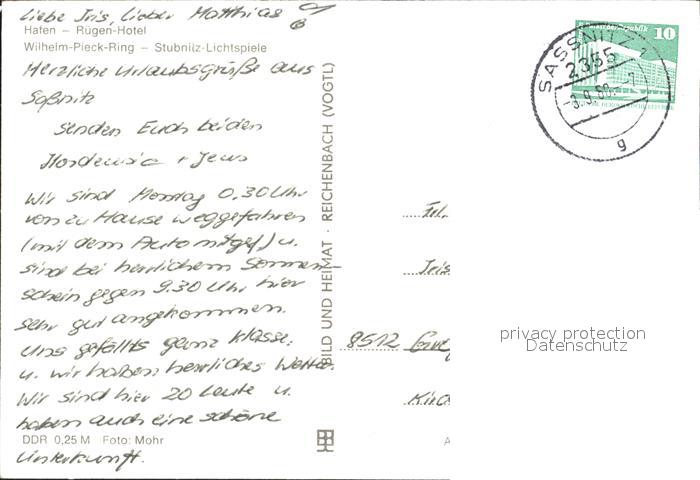 Liebe Iris, Lieber Matthias
Hafen – Rügen-Hotel
Wilhelm-Pieck-Ring – Stubnitz-Lichtspiele
Herzliche Urlaubsgrüße aus
Saßnitz
senden Euch beiden
+ Jens
Wir sind Montag 0.30 Uhr
von zu Hause weggefahren
(mit dem Auto mitgef.) u.
sind bei herrlichem Sonnen-
schein gegen 9.30 Uhr hier
sehr gut angekommen.
Uns gefällts ganz klasse,
u. wir haben herrliches Wetter.
Wir sind hier 20 Leute u.
haben auch eine schöne
DDR 0,25 M Foto: Mohr
Unterkunft.
BILD UND HEIMAT · REICHENBACH (VOGTL)
10
SASSNITZ 1
2355
-3.9.80.--7
g
Frl.
Iris
privacy protection
Datenschutz
A